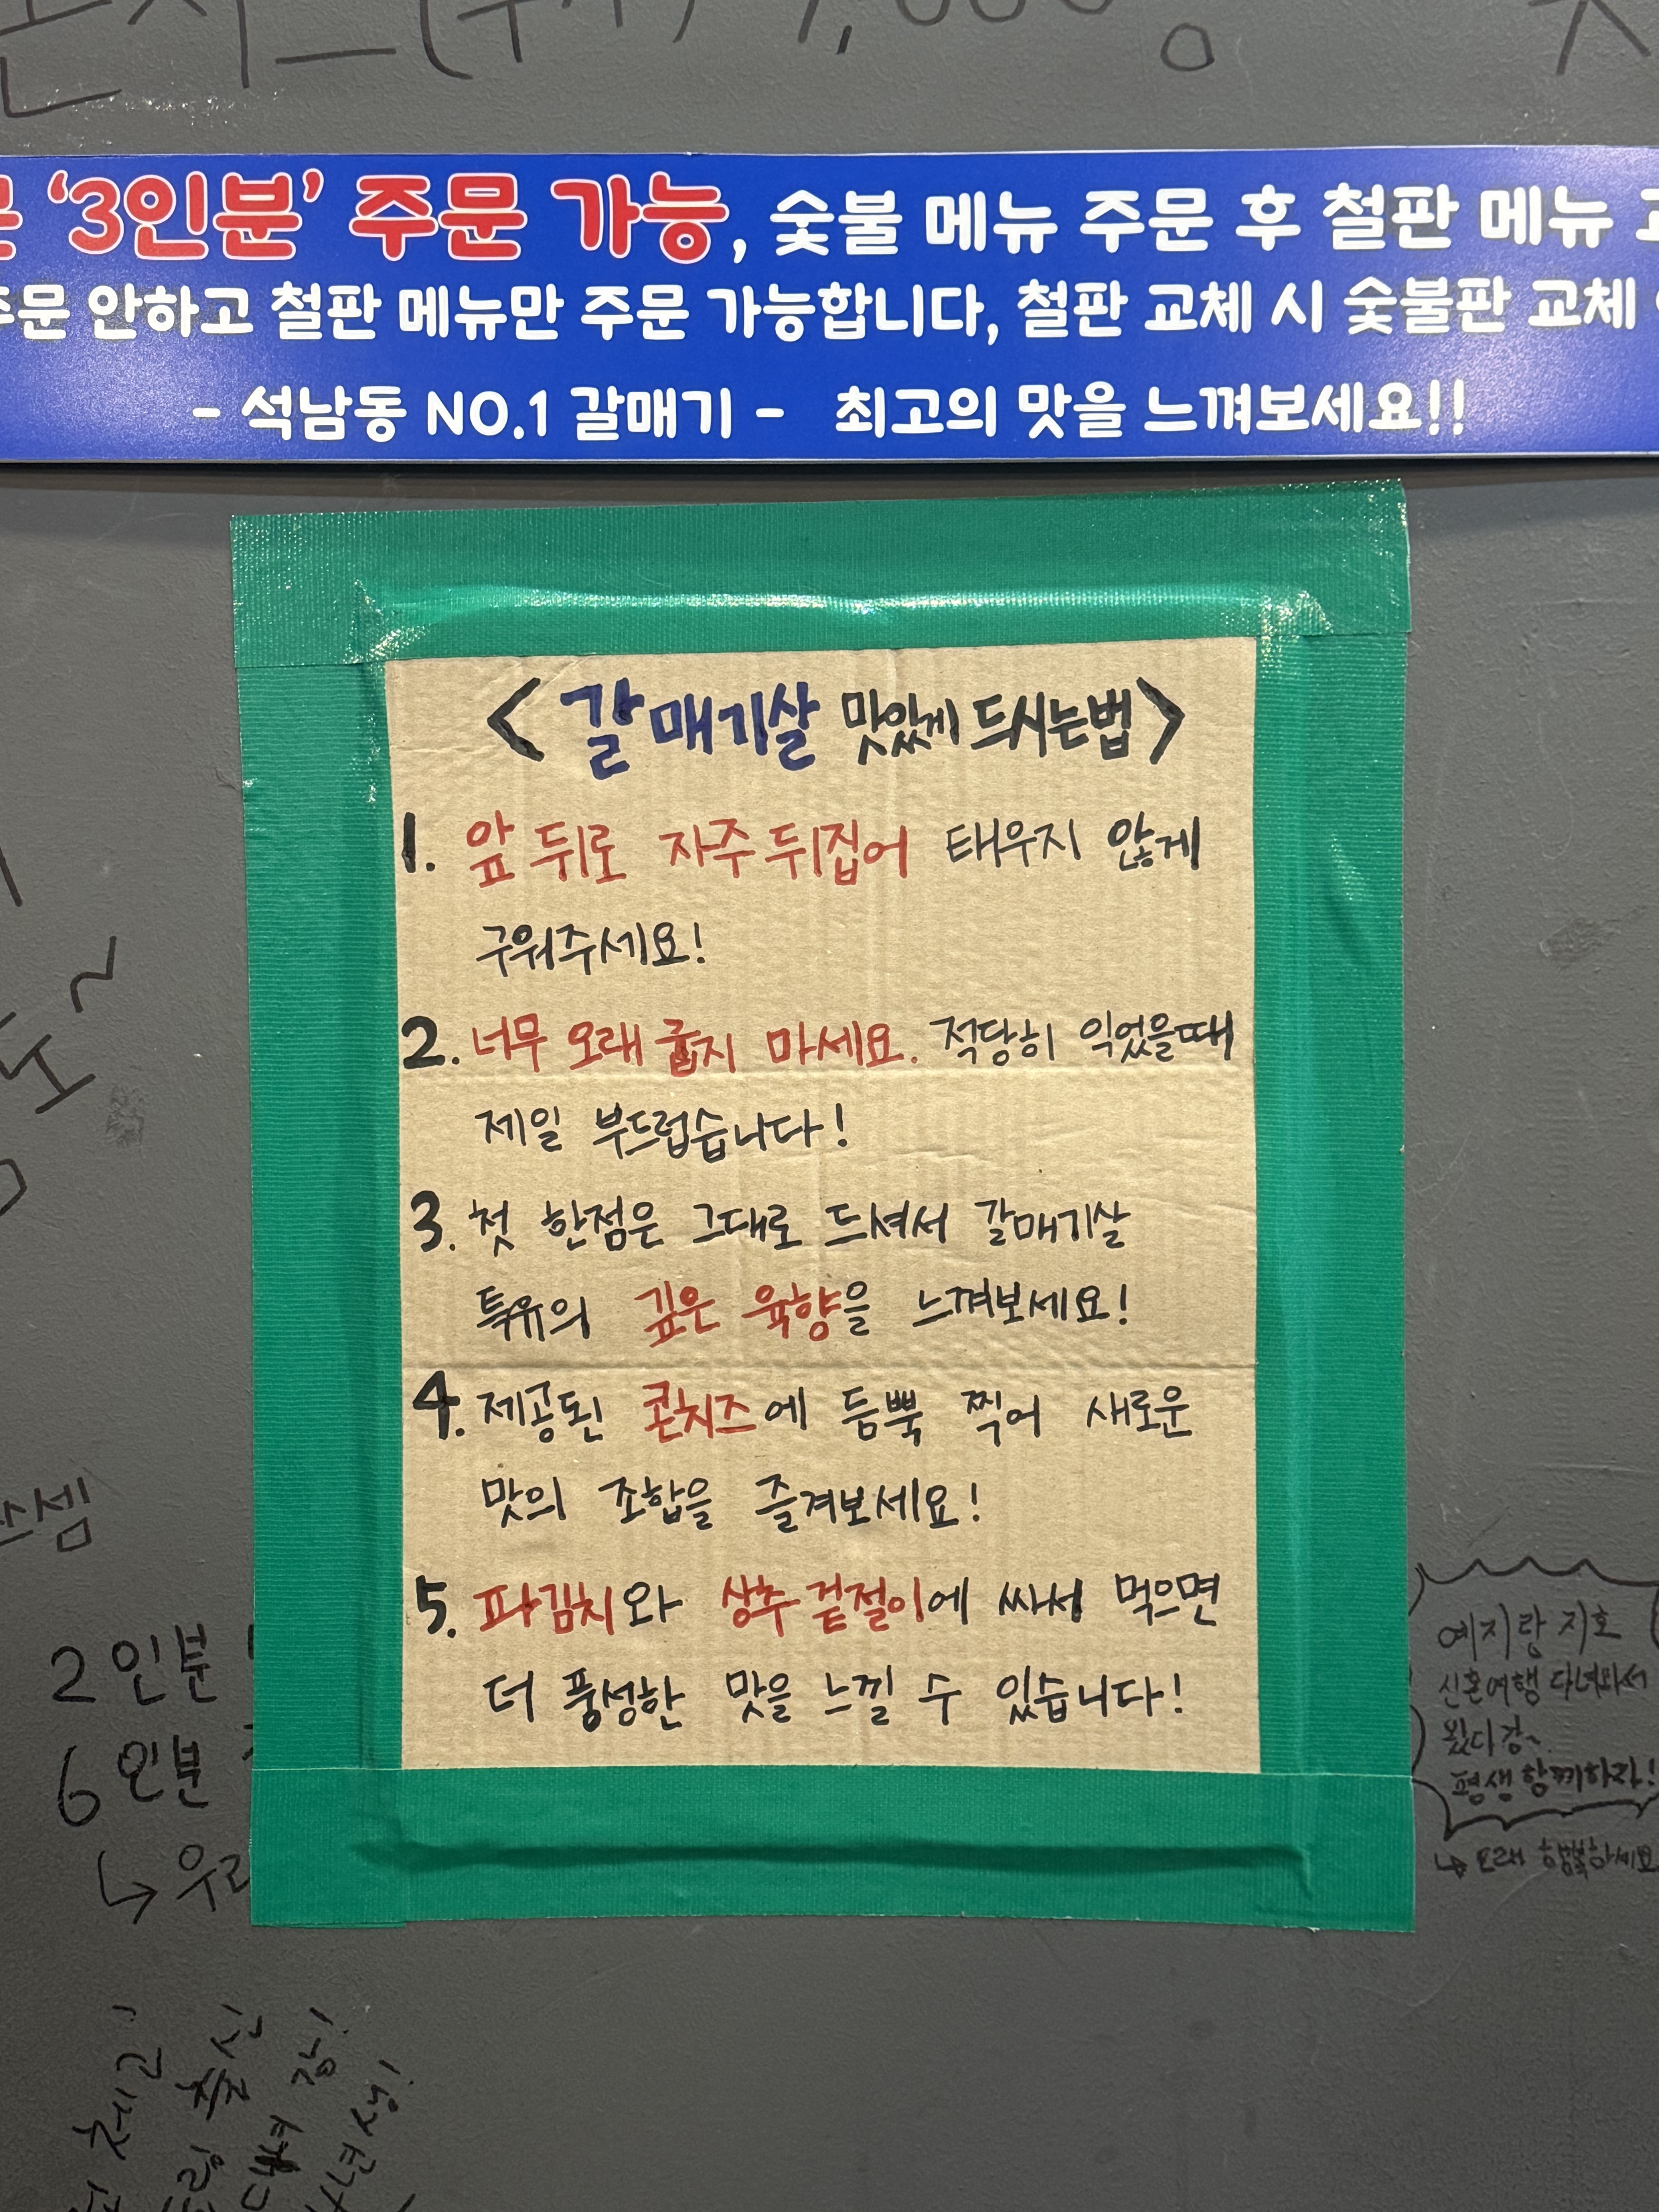 '3인분' 주문 가능, 숯불 메뉴 주문 후 철판 메뉴
주문 안하고 철판 메뉴만 주문 가능합니다, 철판 교체 시 숯불판 교체
- 석남동 NO.1 갈매기 - 최고의 맛을 느껴보세요!!
< 갈매기살 맛있게 드시는법 >
1. 앞 뒤로 자주 뒤집어 태우지 않게
구워주세요!
2. 너무 오래 굽지 마세요. 적당히 익었을때
제일 부드럽습니다!
3. 첫 한점은 그대로 드셔서 갈매기살
특유의 깊은 육향을 느껴보세요!
4. 제공된 콘치즈에 듬뿍 찍어 새로운
맛의 조합을 즐겨보세요!
5. 파김치와 상추 겉절이에 싸서 먹으면
더 풍성한 맛을 느낄 수 있습니다!
2인분
6인분
예지랑 지호
신혼여행 다녀와서
왔다강~
평생 함께하자!
↳ 오래 행복하세요